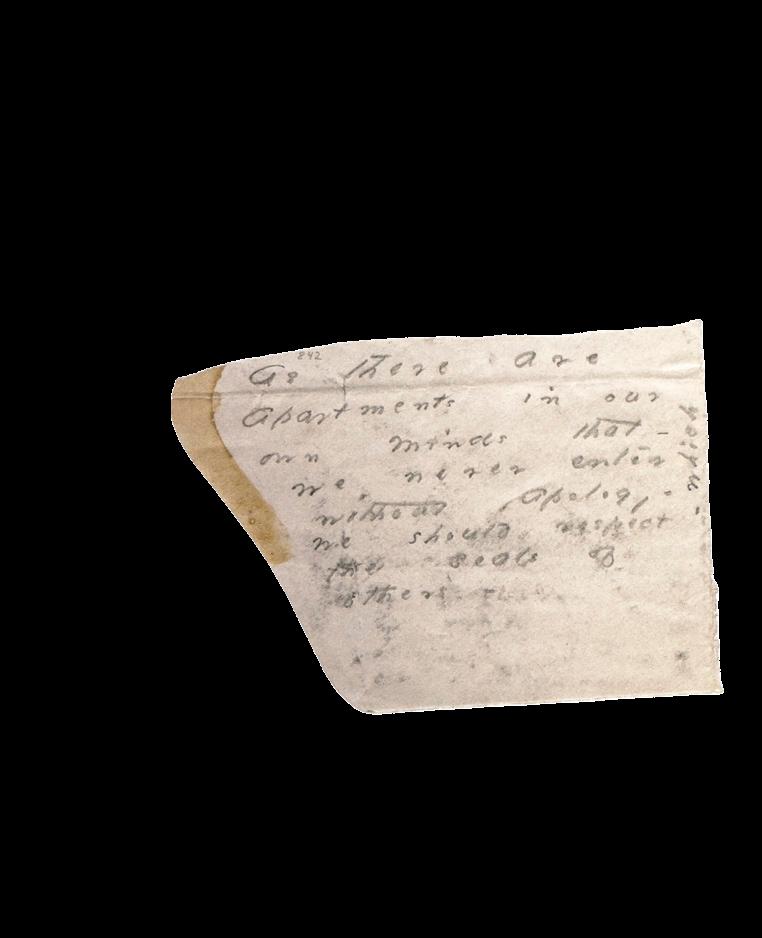 842
As there are
Apartments in our
own minds that -
we never enter
without Apology -
we should respect
the seals of
others -
- which